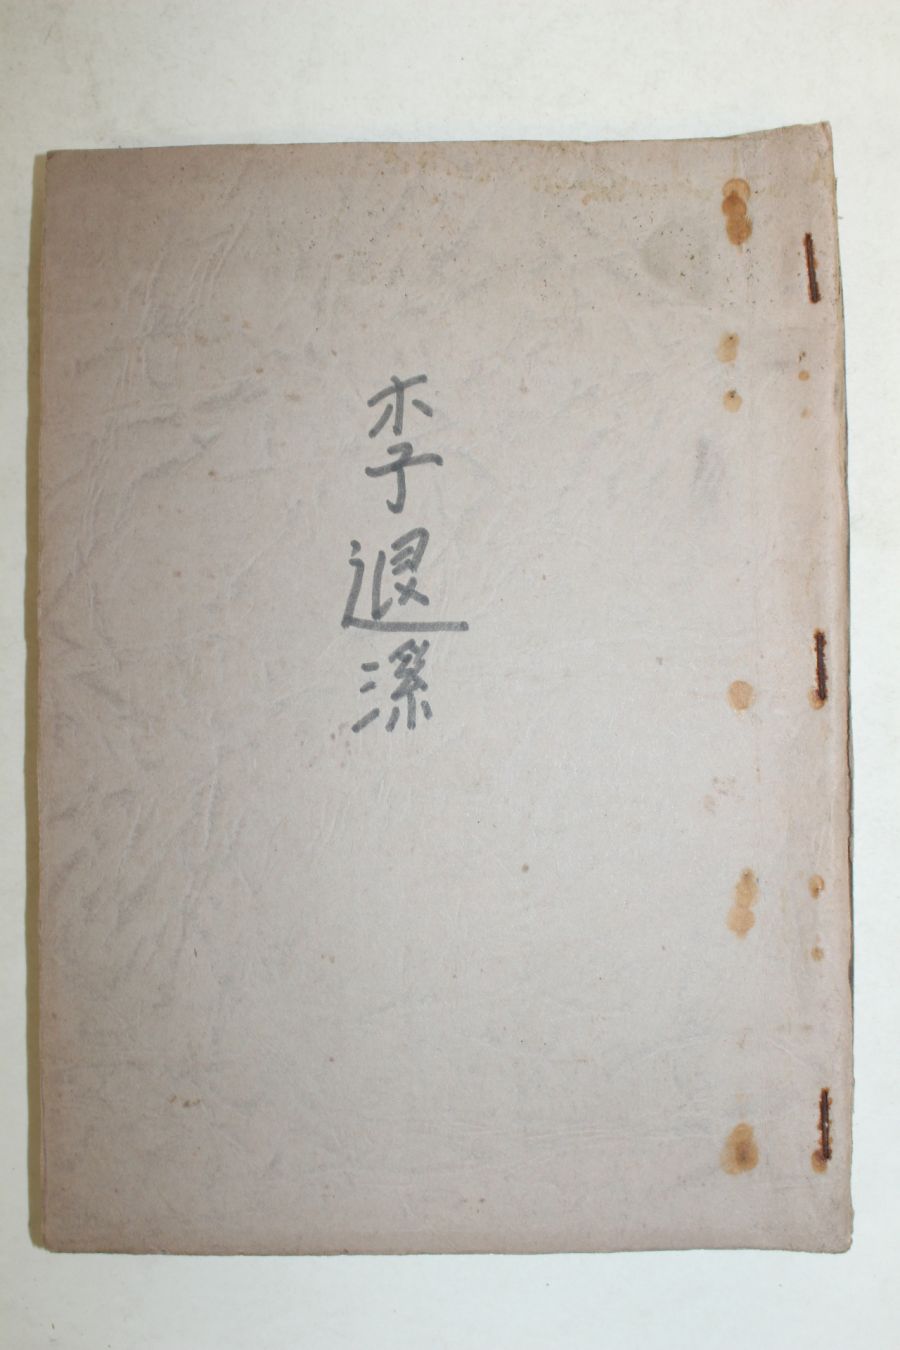 李退溪